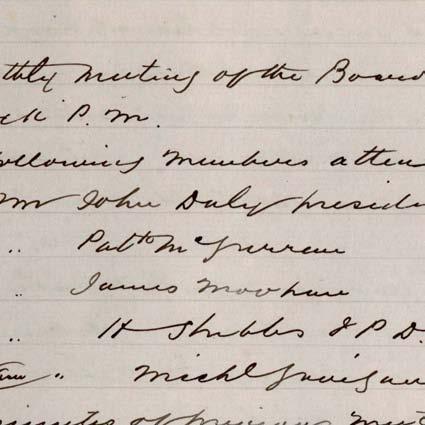 thly Meeting of the Board
ck P.M.
ollowing Members atten
m John Daly preside
" Patk McGurran
" James Moohan
" H Stubbs J P D.
" Michl
minutes of previous Meet